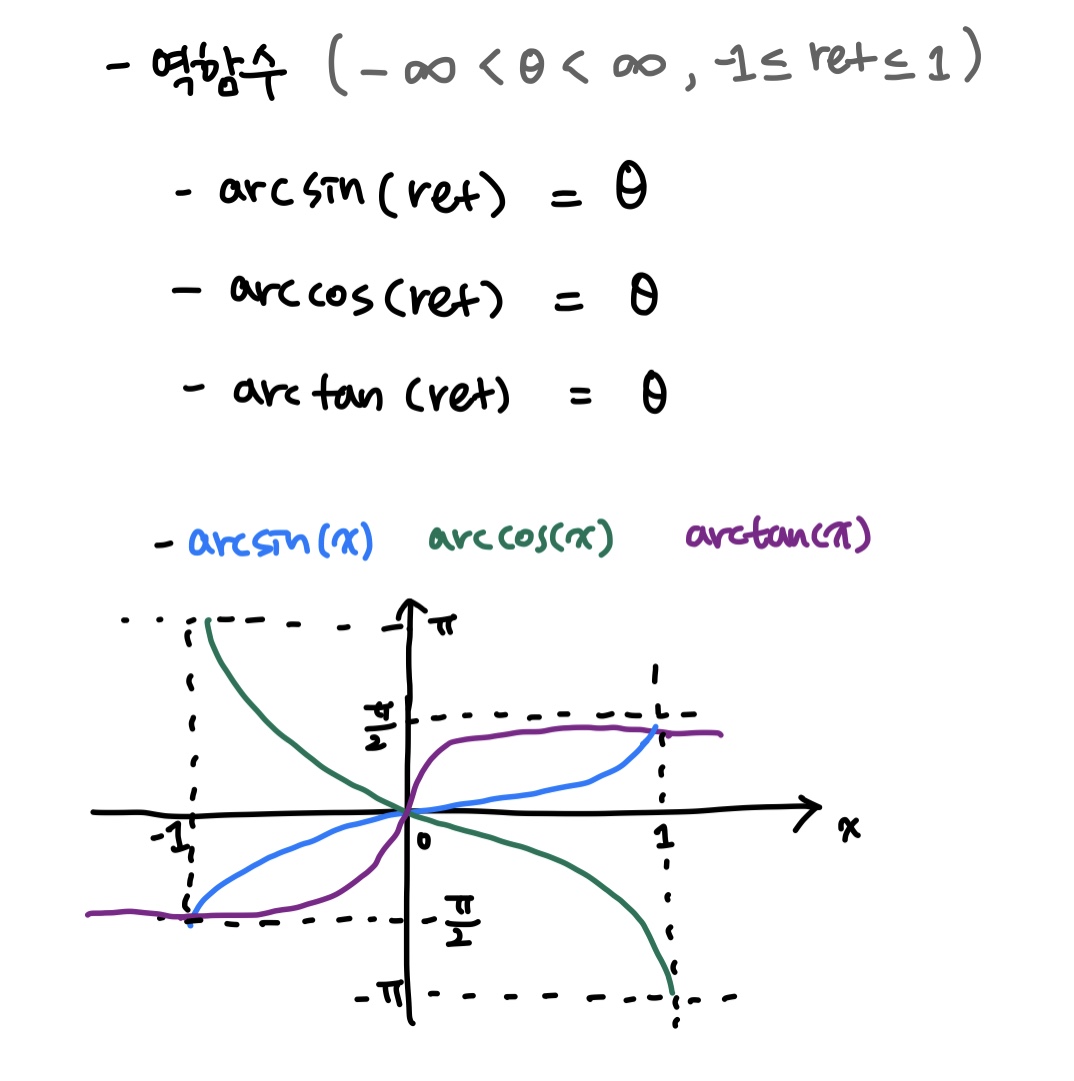 - 역함수 (-∞ < θ < ∞, -1 ≤ ret ≤ 1)
- arcsin(ret) = θ
- arccos(ret) = θ
- arctan(ret) = θ
- arcsin(x) arccos(x) arctan(x)
π
π/2
-1 0 1 x
-π/2
-π